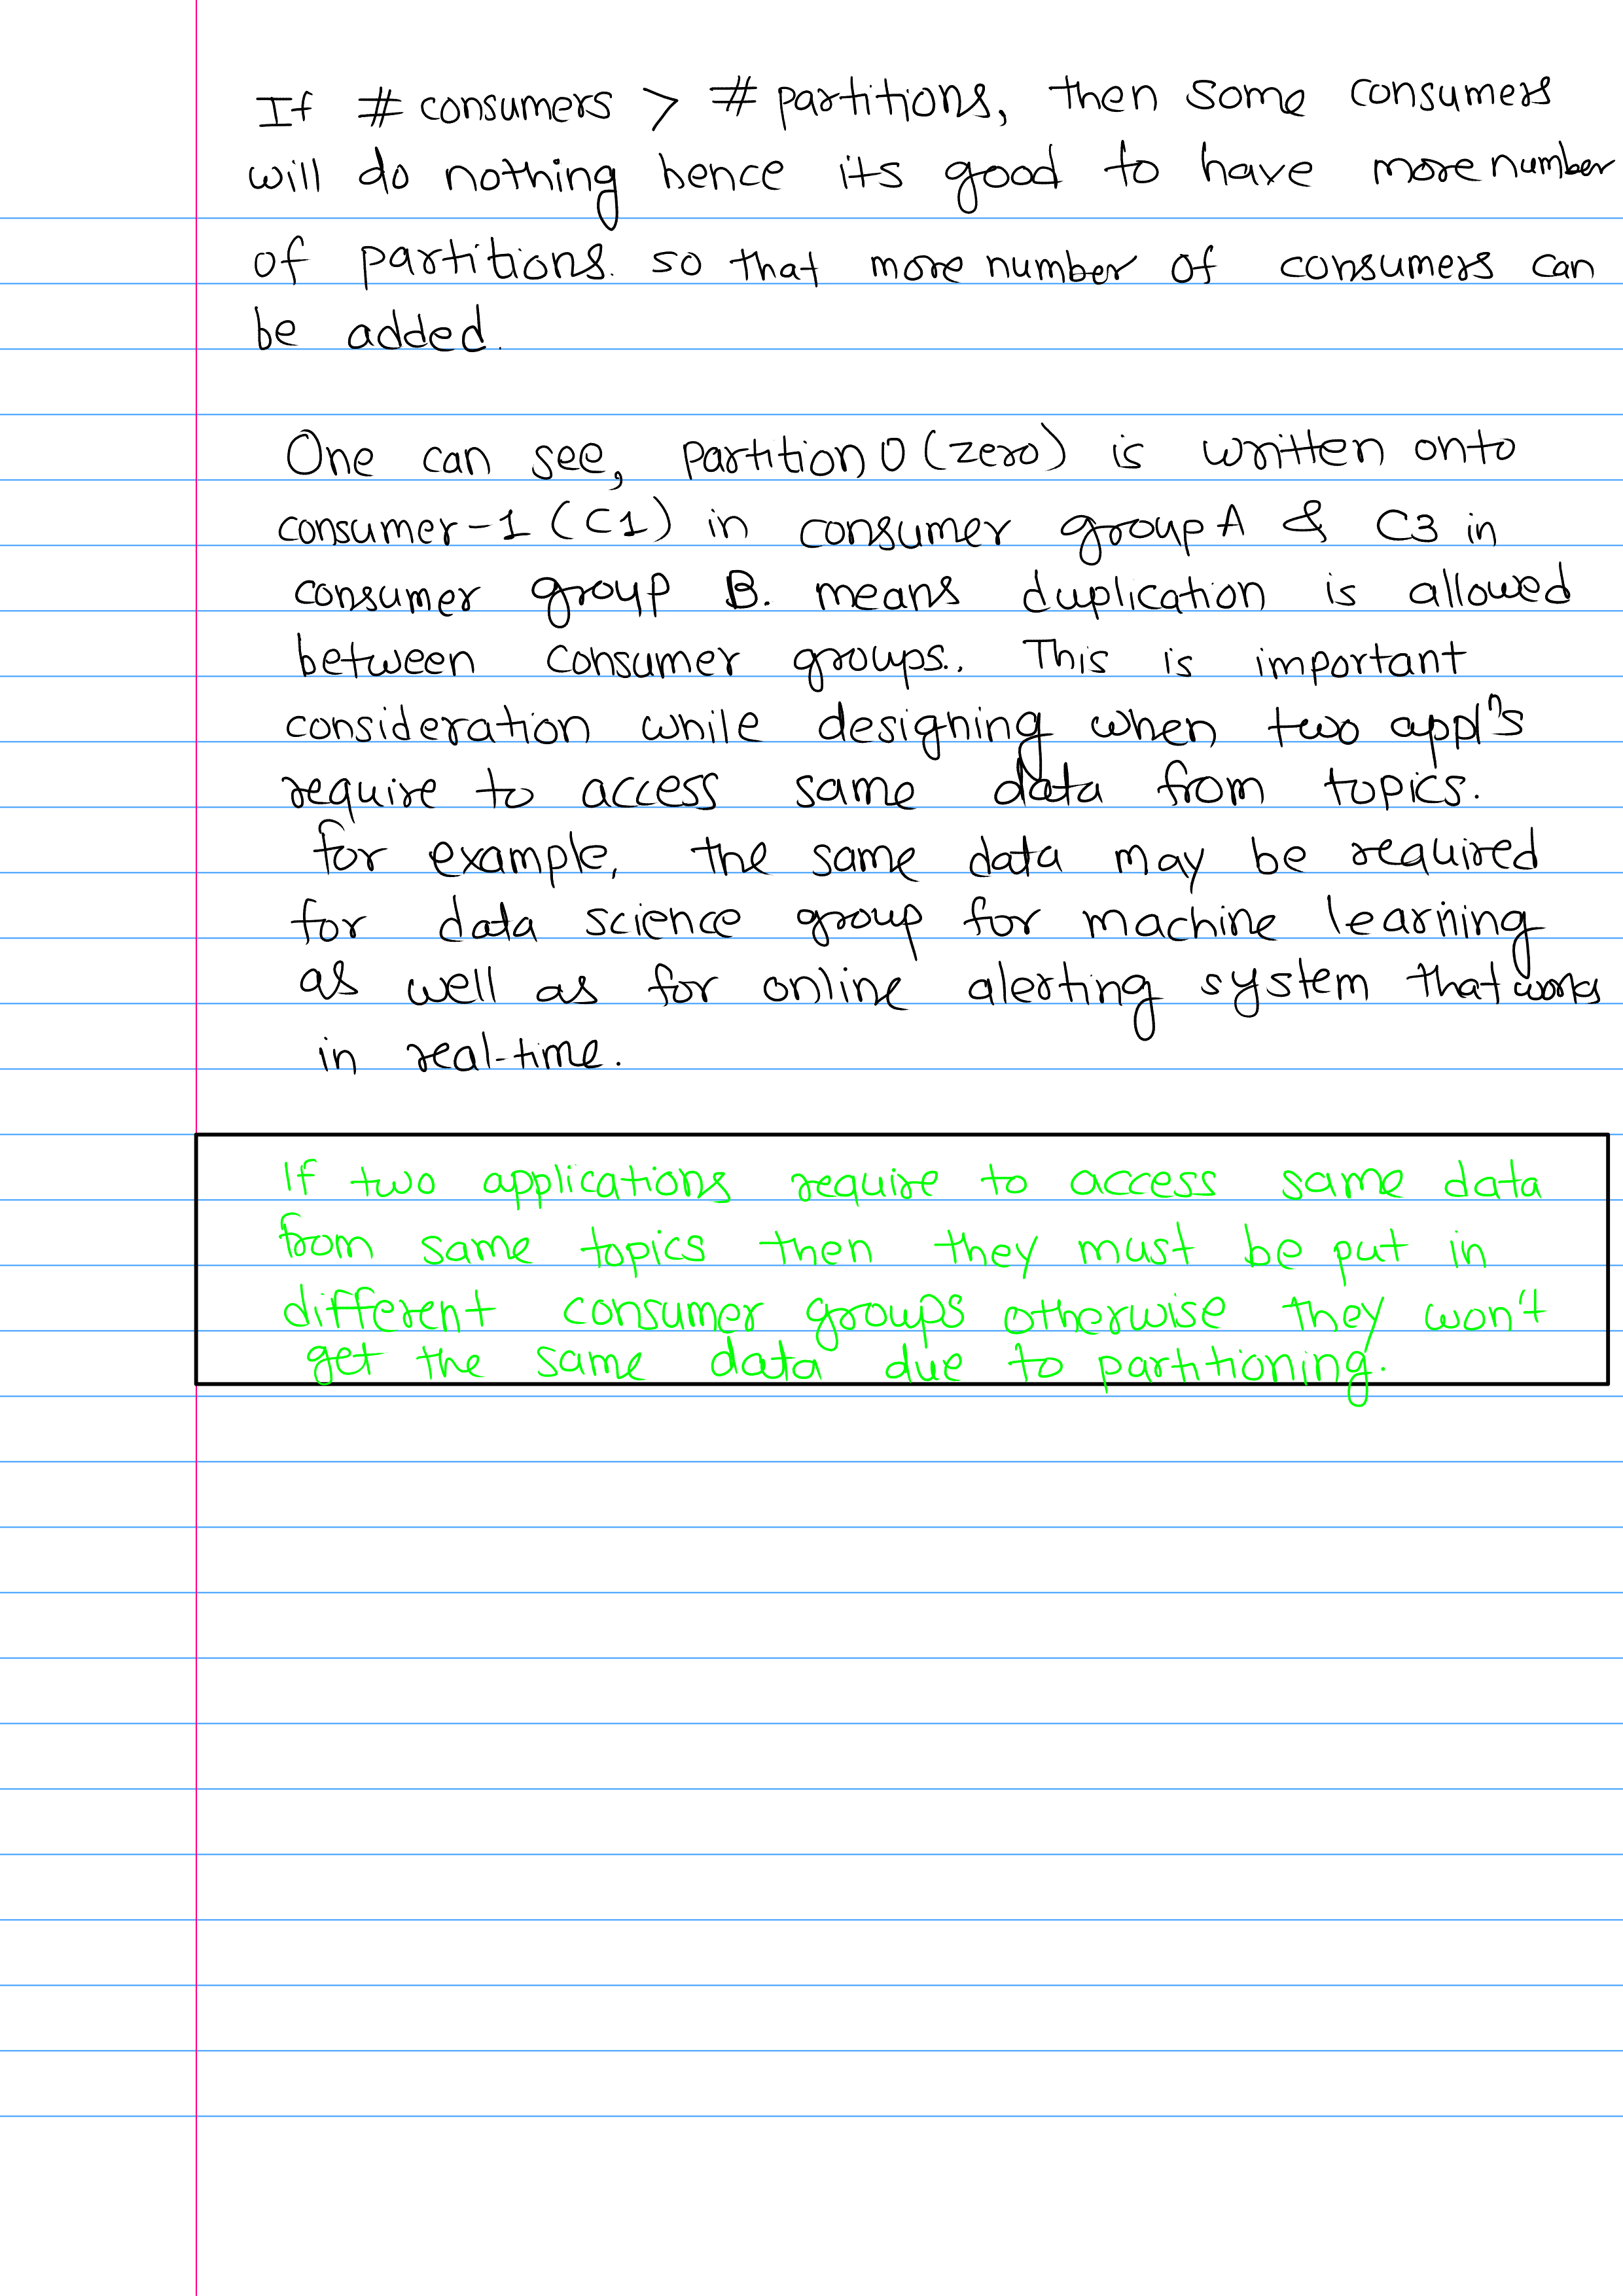 If # consumers > # partitions, then some consumers
will do nothing hence its good to have more number
of partitions. so that more number of consumers can
be added.
One can see, partition 0 (zero) is written onto
consumer-1 (C1) in consumer group A & C3 in
consumer group B. means duplication is allowed
between consumer groups.. This is important
consideration while designing when two appl's
require to access same data from topics.
for example, the same data may be required
for data science group for machine learning
as well as for online alerting system that works
in real-time.
If two applications require to access same data
from same topics then they must be put in
different consumer groups otherwise they won't
get the same data due to partitioning.